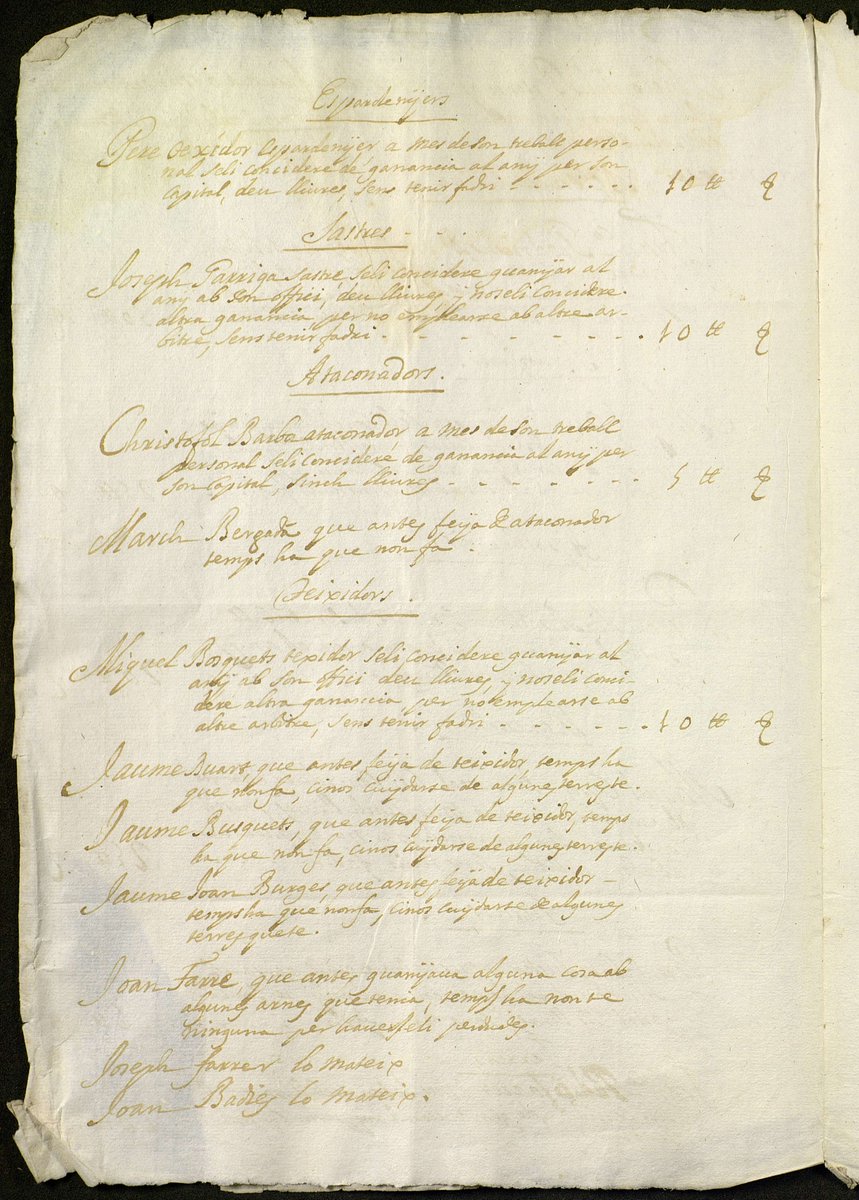 Espardenÿers
Pere Texidor espardenÿer a mes de son treball perso-
nal seli concidere de ganancia al anÿ per son
Capital, deu lliures, sens tenir fadri - - - - - . 10 tt
Sastres - - -
Joseph Garriga sastre, seli concidere guanÿar al
anÿ ab son offici, deu lliures, y noseli concidere
altra ganancia per no emplearse ab altre ar-
bitre, sens tenir fadri - - - - - - - - . 10 tt
Ataconadors.
Christofol Barba ataconador a mes de son treball
personal seli concidere de ganancia al anÿ per
son Capital, sinch lliures - - - - - - - 5 tt
March Bergadà que antes feÿa de ataconador
temps ha que non fa .
Teixidors .
Miquel Bosquets texidor seli concidere guanÿar al
anÿ ab son offici deu lliures, y noseli conci-
dere altra ganancia per no emplearse ab
altre arbitre, sens tenir fadri - - - - - - 10 tt
Jaume que antes feÿa de teixidor temps ha
que non fa, cinos cuÿdarse de algunes terres te.
Jaume Busquets, que antes feÿa de teixidor, temps
ha que non fa, cinos cuÿdarse de algunes terres te.
Jaume Joan Burges, que antes feÿa de teixidor -
temps ha que non fa, cinos cuÿdarse de algunes
terres que te.
Joan Farre, que antes guanÿaua alguna cosa ab
algunes arnes que tenia, temps ha non te
ninguna per hauerseli perdudes.
Joseph Farrer lo mateix
Joan Badies lo mateix.